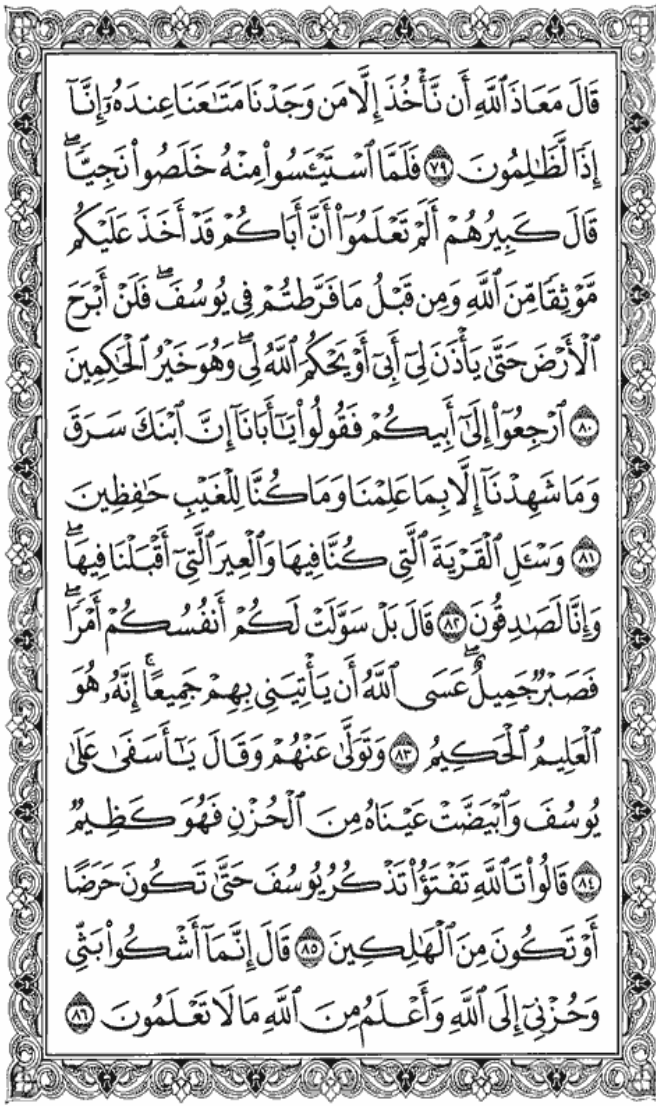 قَالَ مَعَاذَ ٱللَّهِ أَن نَّأۡخُذَ إِلَّا مَن وَجَدۡنَا مَتَٰعَنَا عِندَهُۥٓ إِنَّآ
إِذٗا لَّظَٰلِمُونَ ٧٩ فَلَمَّا ٱسۡتَيۡـَٔسُواْ مِنۡهُ خَلَصُواْ نَجِيّٗاۖ
قَالَ كَبِيرُهُمۡ أَلَمۡ تَعۡلَمُوٓاْ أَنَّ أَبَاكُمۡ قَدۡ أَخَذَ عَلَيۡكُم
مَّوۡثِقٗا مِّنَ ٱللَّهِ وَمِن قَبۡلُ مَا فَرَّطتُمۡ فِي يُوسُفَۖ فَلَنۡ أَبۡرَحَ
ٱلۡأَرۡضَ حَتَّىٰ يَأۡذَنَ لِيٓ أَبِيٓ أَوۡ يَحۡكُمَ ٱللَّهُ لِيۖ وَهُوَ خَيۡرُ ٱلۡحَٰكِمِينَ
٨٠ ٱرۡجِعُوٓاْ إِلَىٰٓ أَبِيكُمۡ فَقُولُواْ يَٰٓأَبَانَآ إِنَّ ٱبۡنَكَ سَرَقَ
وَمَا شَهِدۡنَآ إِلَّا بِمَا عَلِمۡنَا وَمَا كُنَّا لِلۡغَيۡبِ حَٰفِظِينَ
٨١ وَسۡـَٔلِ ٱلۡقَرۡيَةَ ٱلَّتِي كُنَّا فِيهَا وَٱلۡعِيرَ ٱلَّتِيٓ أَقۡبَلۡنَا فِيهَاۖ
وَإِنَّا لَصَٰدِقُونَ ٨٢ قَالَ بَلۡ سَوَّلَتۡ لَكُمۡ أَنفُسُكُمۡ أَمۡرٗاۖ
فَصَبۡرٞ جَمِيلٌۖ عَسَى ٱللَّهُ أَن يَأۡتِيَنِي بِهِمۡ جَمِيعًاۚ إِنَّهُۥ هُوَ
ٱلۡعَلِيمُ ٱلۡحَكِيمُ ٨٣ وَتَوَلَّىٰ عَنۡهُمۡ وَقَالَ يَٰٓأَسَفَىٰ عَلَىٰ
يُوسُفَ وَٱبۡيَضَّتۡ عَيۡنَاهُ مِنَ ٱلۡحُزۡنِ فَهُوَ كَظِيمٞ
٨٤ قَالُواْ تَٱللَّهِ تَفۡتَؤُاْ تَذۡكُرُ يُوسُفَ حَتَّىٰ تَكُونَ حَرَضًا
أَوۡ تَكُونَ مِنَ ٱلۡهَٰلِكِينَ ٨٥ قَالَ إِنَّمَآ أَشۡكُواْ بَثِّي
وَحُزۡنِيٓ إِلَى ٱللَّهِ وَأَعۡلَمُ مِنَ ٱللَّهِ مَا لَا تَعۡلَمُونَ ٨٦